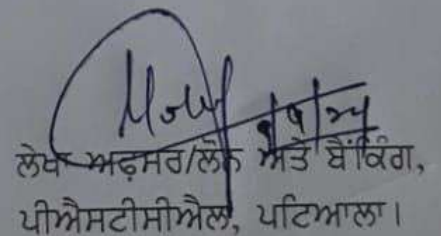 9/9/24
ਲੇਖਾ ਅਫ਼ਸਰ/ਲੋਨ ਅਤੇ ਬੈਂਕਿੰਗ,
ਪੀਐਸਟੀਸੀਐਲ, ਪਟਿਆਲਾ।